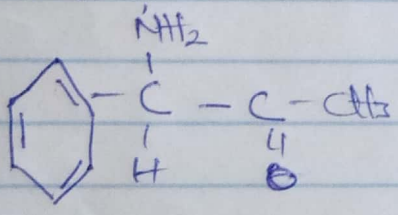 NH2
C - C - CH3
H O